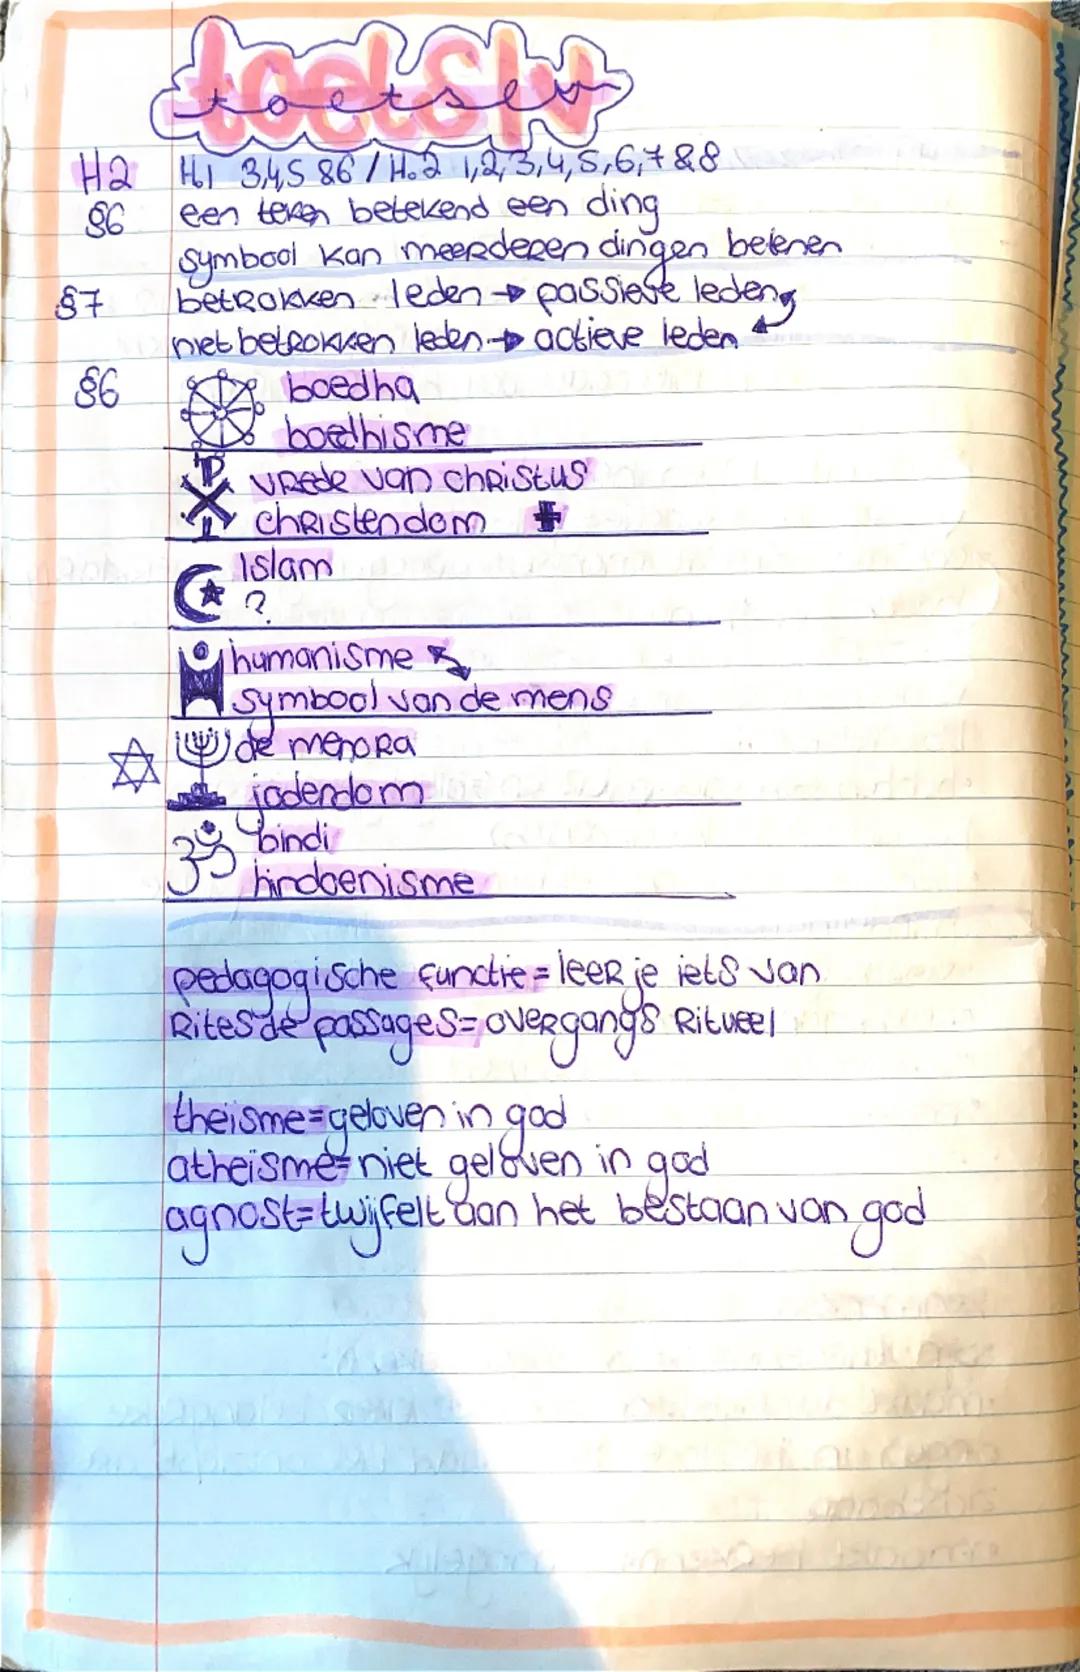 toets lv
toets lv
H2 H.1 3,4,5 & 6 / H.2 1,2,3,4,5,6,7 & 8
§6 een teken betekend een ding
symbool kan meerderen dingen betenen
§7 betrokken leden → passieve leden
niet betrokken leden → actieve leden
§6 boedha
boedhisme
vrede van christus
christendom
Islam
?
humanisme
symbool van de mens
de menora
jodendom
ॐ bindi
hindoenisme
pedagogische functie = leer je iets van
Rites de passages = overgangs Ritueel
theisme = geloven in god
atheisme = niet geloven in god
agnost = twijfelt aan het bestaan van god